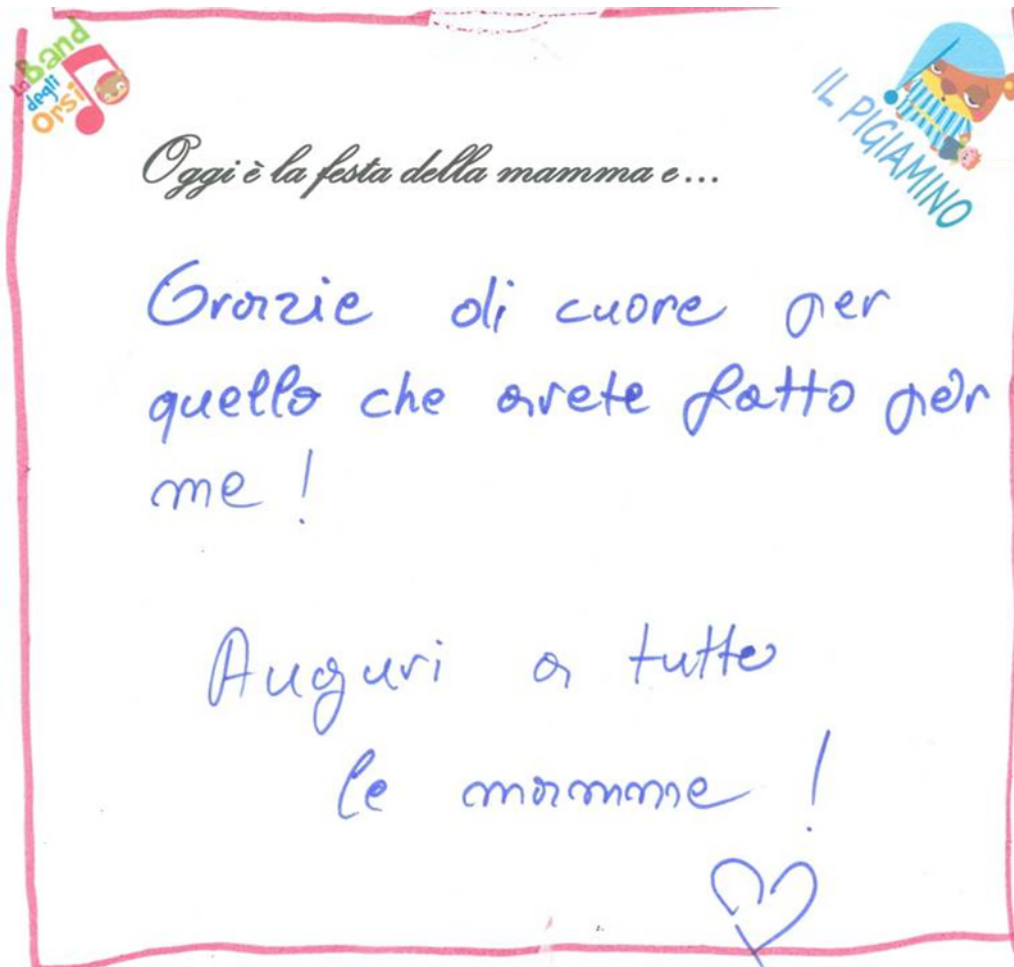 La Band
degli
Orsi
IL PIGIAMINO
Oggi è la festa della mamma e...
Grazie di cuore per
quello che avete fatto per
me !
Auguri a tutte
le mamme !